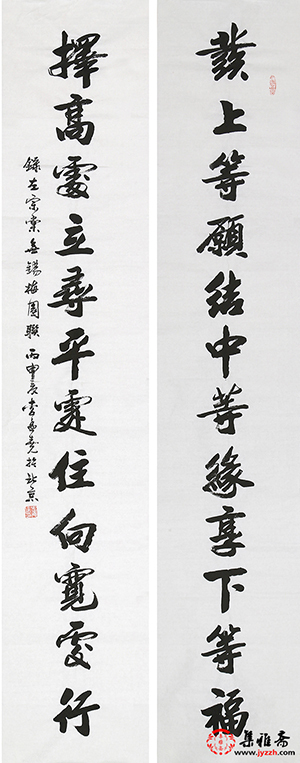 發上等願結中等緣享下等福
擇高處立尋平處住向寬處行
錄左宗棠無錫梅園聯 丙申夏李於北京
集雅斋
www.jyzzh.com